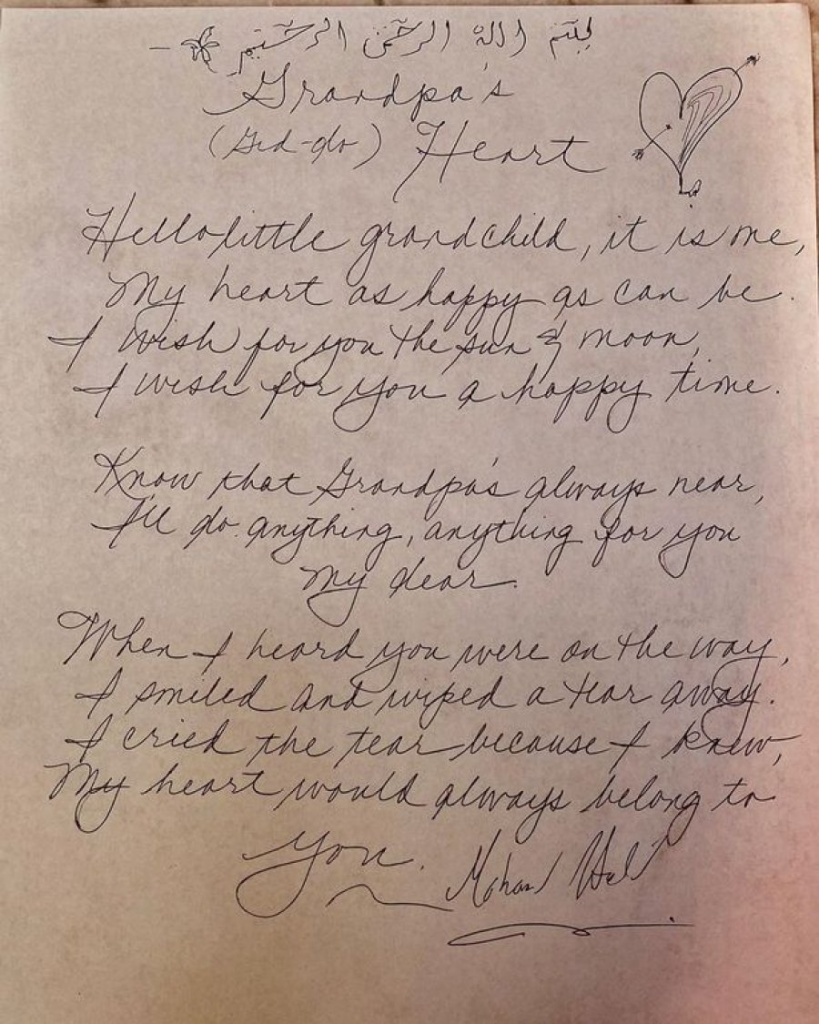 بسم الله الرحمن الرحيم
Grandpa's
(Ged-do) Heart
Hello little grandchild, it is me,
My heart as happy as can be.
I wish for you the sun & moon,
I wish for you a happy time.
Know that Grandpa's always near,
I'll do anything, anything for you
my dear.
When I heard you were on the way,
I smiled and wiped a tear away.
I cried the tear because I knew,
My heart would always belong to
you.